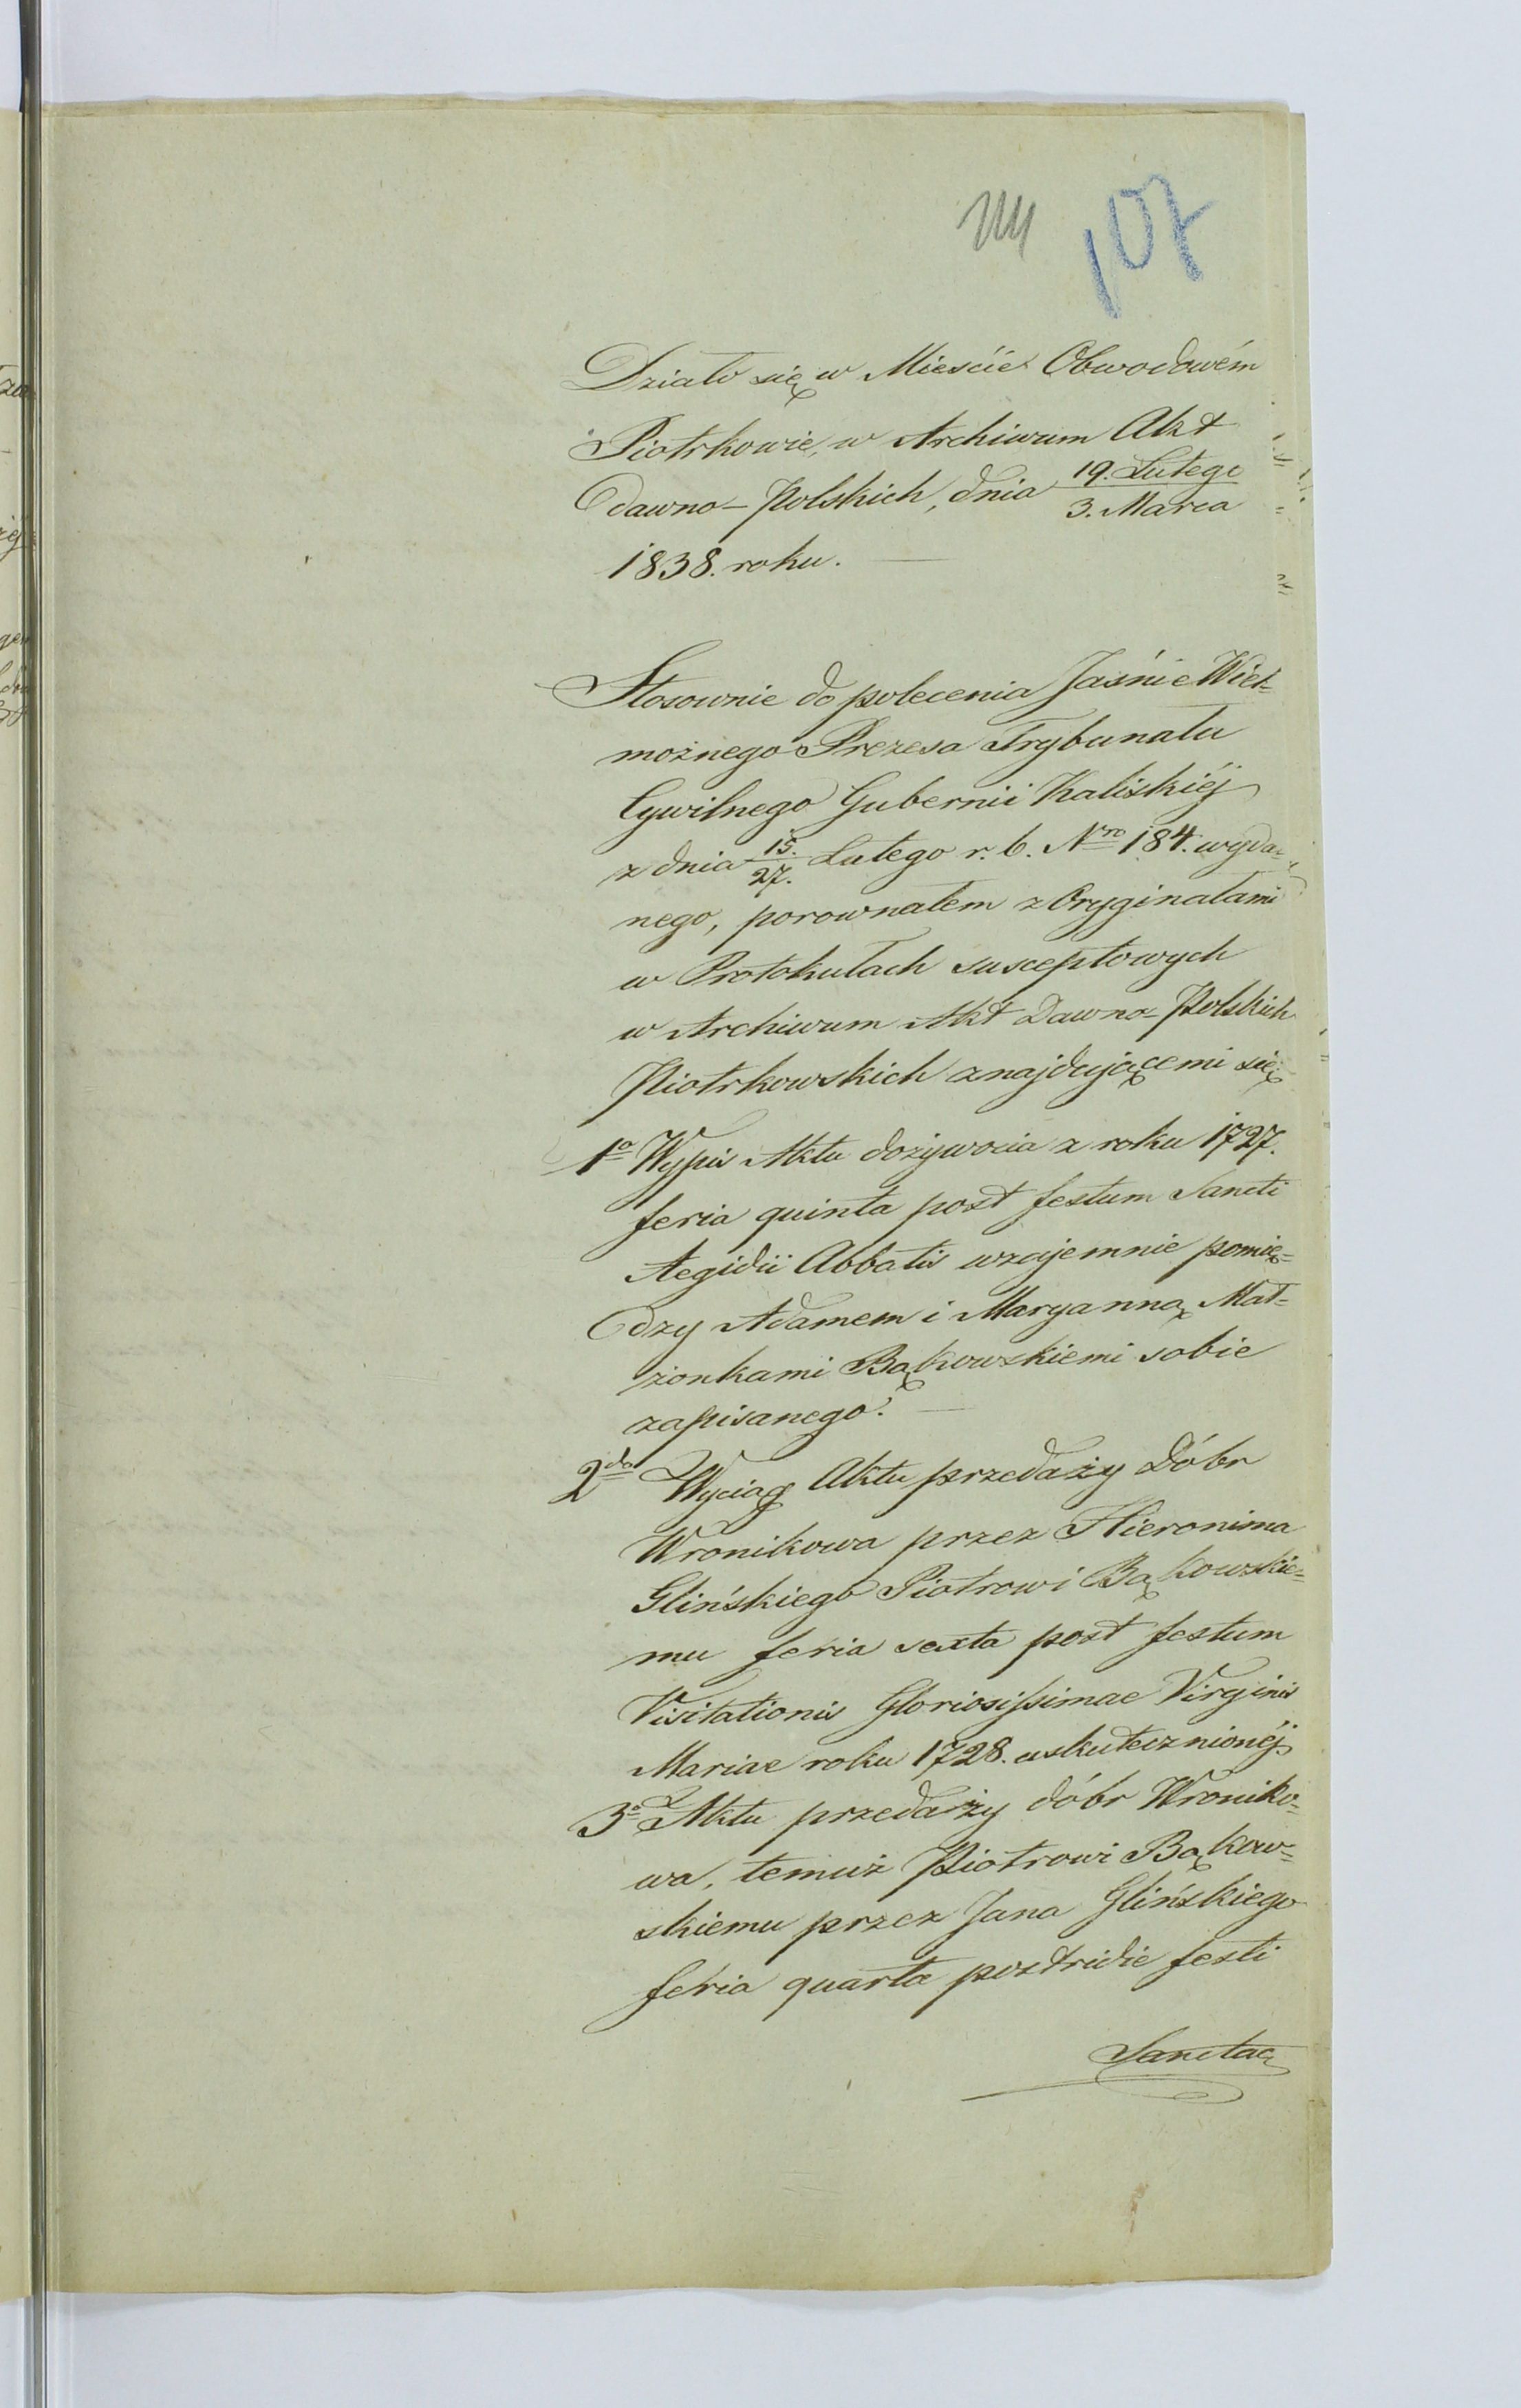 107
Działo się w Mieście Obwodowém
Piotrkowie, w Archiwum Akt
dawno-Polskich, dnia 19. Lutego / 3. Marca
1838. roku.
Stosownie do polecenia Jaśnie Wiel-
możnego Prezesa Trybunału
Cywilnego Gubernii Kaliskiéj
z dnia 15./27. Lutego r. b. Nro 184. wyda-
nego, porownałem z Oryginałami
w Protokułach susceptowych
w Archiwum Akt Dawno-Polskich
Piotrkowskich znajdującemi się
1o Wypis Aktu dożywocia z roku 1727.
feria quinta post festum Sancti
Aegidii Abbatis wzajemnie pomię-
dzy Adamem i Maryanną Mał-
żonkami Bąkowskiemi sobie
zapisanego.
2do Wyciąg Aktu przedaży Dóbr
Wronikowa przez Hieronima
Glińskiego Piotrowi Bąkowskie-
mu feria sexta post festum
Visitationis Gloriosissimae Virginis
Mariae roku 1728. uskutecznionéj
3o Aktu przedaży dóbr Wroniko-
wa, temuż Piotrowi Bąkow-
skiemu przez Jana Glińskiego
feria quarta postridie festi
Sanctae